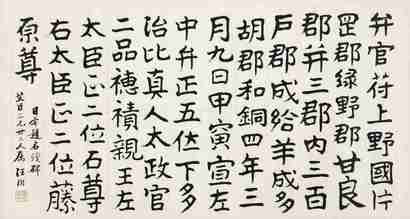 弁官苻上野國片
罡郡緑野郡甘良
郡并三郡内三百
戸郡成給羊成多
胡郡和銅四年三
月九日甲寅宣左
中弁正五位下多
治比真人太政官
二品穂積親王左
太臣正二位石尊
右太臣正二位藤
原尊